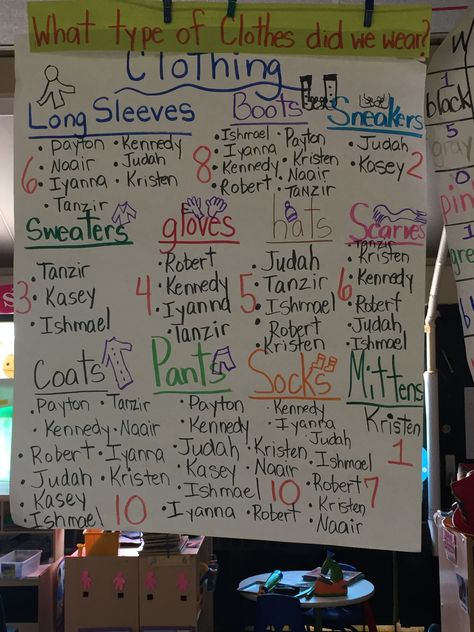 What type of Clothes did we wear?
Clothing
Long Sleeves
• Payton • Kennedy
• Naair • Judah
• Iyanna • Kristen
• Tanzir
6
Boots
• Ishmael • Payton
• Iyanna • Kristen
• Kennedy • Naair
• Robert • Tanzir
8
Sneakers
• Judah
• Kasey
2
Sweaters
• Tanzir
• Kasey
• Ishmael
3
gloves
• Robert
• Kennedy
• Iyanna
• Tanzir
4
hats
• Judah
• Tanzir
• Ishmael
• Robert
• Kristen
5
Scarves
Tanzir
• Kristen
• Kennedy
• Robert
• Judah
• Ishmael
6
Coats
• Payton • Tanzir
• Kennedy • Naair
• Robert • Iyanna
• Judah • Kristen
• Kasey
• Ishmael
10
Pants
• Payton
• Kennedy
• Judah • Kristen
• Kasey • Naair
• Ishmael
• Iyanna • Robert
10
Socks
• Kennedy
• Iyanna
• Judah
• Ishmael
• Robert
• Kristen
• Naair
7
Mittens
Kristen
1
W
1
black
5
gray
pin